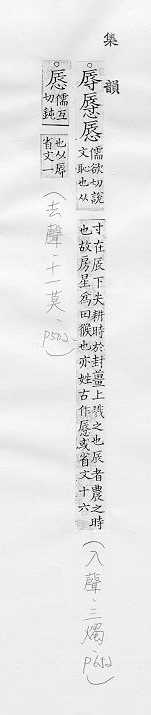 集韻
辱㥛𢟲 儒欲切說
文恥也从
寸在辰下失耕時於封畺上戮之也辰者農之時
也故房星爲田候也亦姓古作㥛或省文十六
(入聲.三燭.p652)
儒互
切鈍
也或从辱
省文一
(去聲.十一莫.p502)